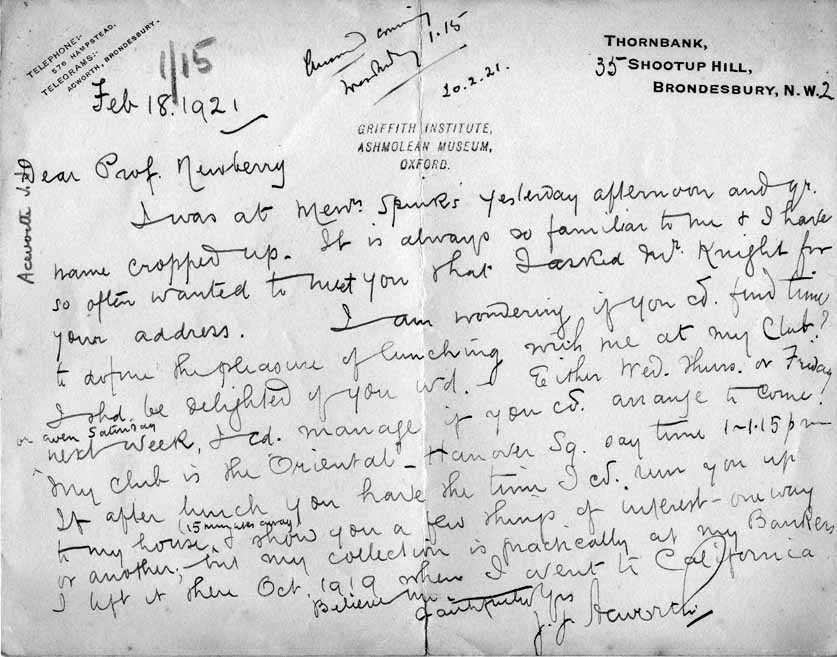 TELEPHONE:-
576 HAMPSTEAD.
TELEGRAMS:-
ACWORTH, BRONDESBURY.
1/15
coming
1.15
20.2.21.
THORNBANK,
35 SHOOTUP HILL,
BRONDESBURY, N.W.2
Feb 18. 1921
GRIFFITH INSTITUTE,
ASHMOLEAN MUSEUM,
OXFORD.
Acworth J.J.
Dear Prof. Newberry
I was at Messrs Spink's yesterday afternoon and yr.
name cropped up. It is always so familiar to me & I have
so often wanted to meet you that I asked Mr. Knight for
your address. I am wondering if you cd. find time
to do me the pleasure of lunching with me at my Club?
I shd. be delighted if you wd. Either Wed. Thurs. or Friday
or even Saturday
next week, I cd. manage if you cd. arrange to come?
My club is the Oriental - Hanover Sq. say time 1-1.15 pm
If after lunch you have the time I cd. run you up
(15 minutes away)
to my house, & show you a few things of interest - one way
or another; but my collection is practically at my Bankers
I left it there Oct. 1919 when I went to California
Believe me
faithfully yrs
J. J. Acworth